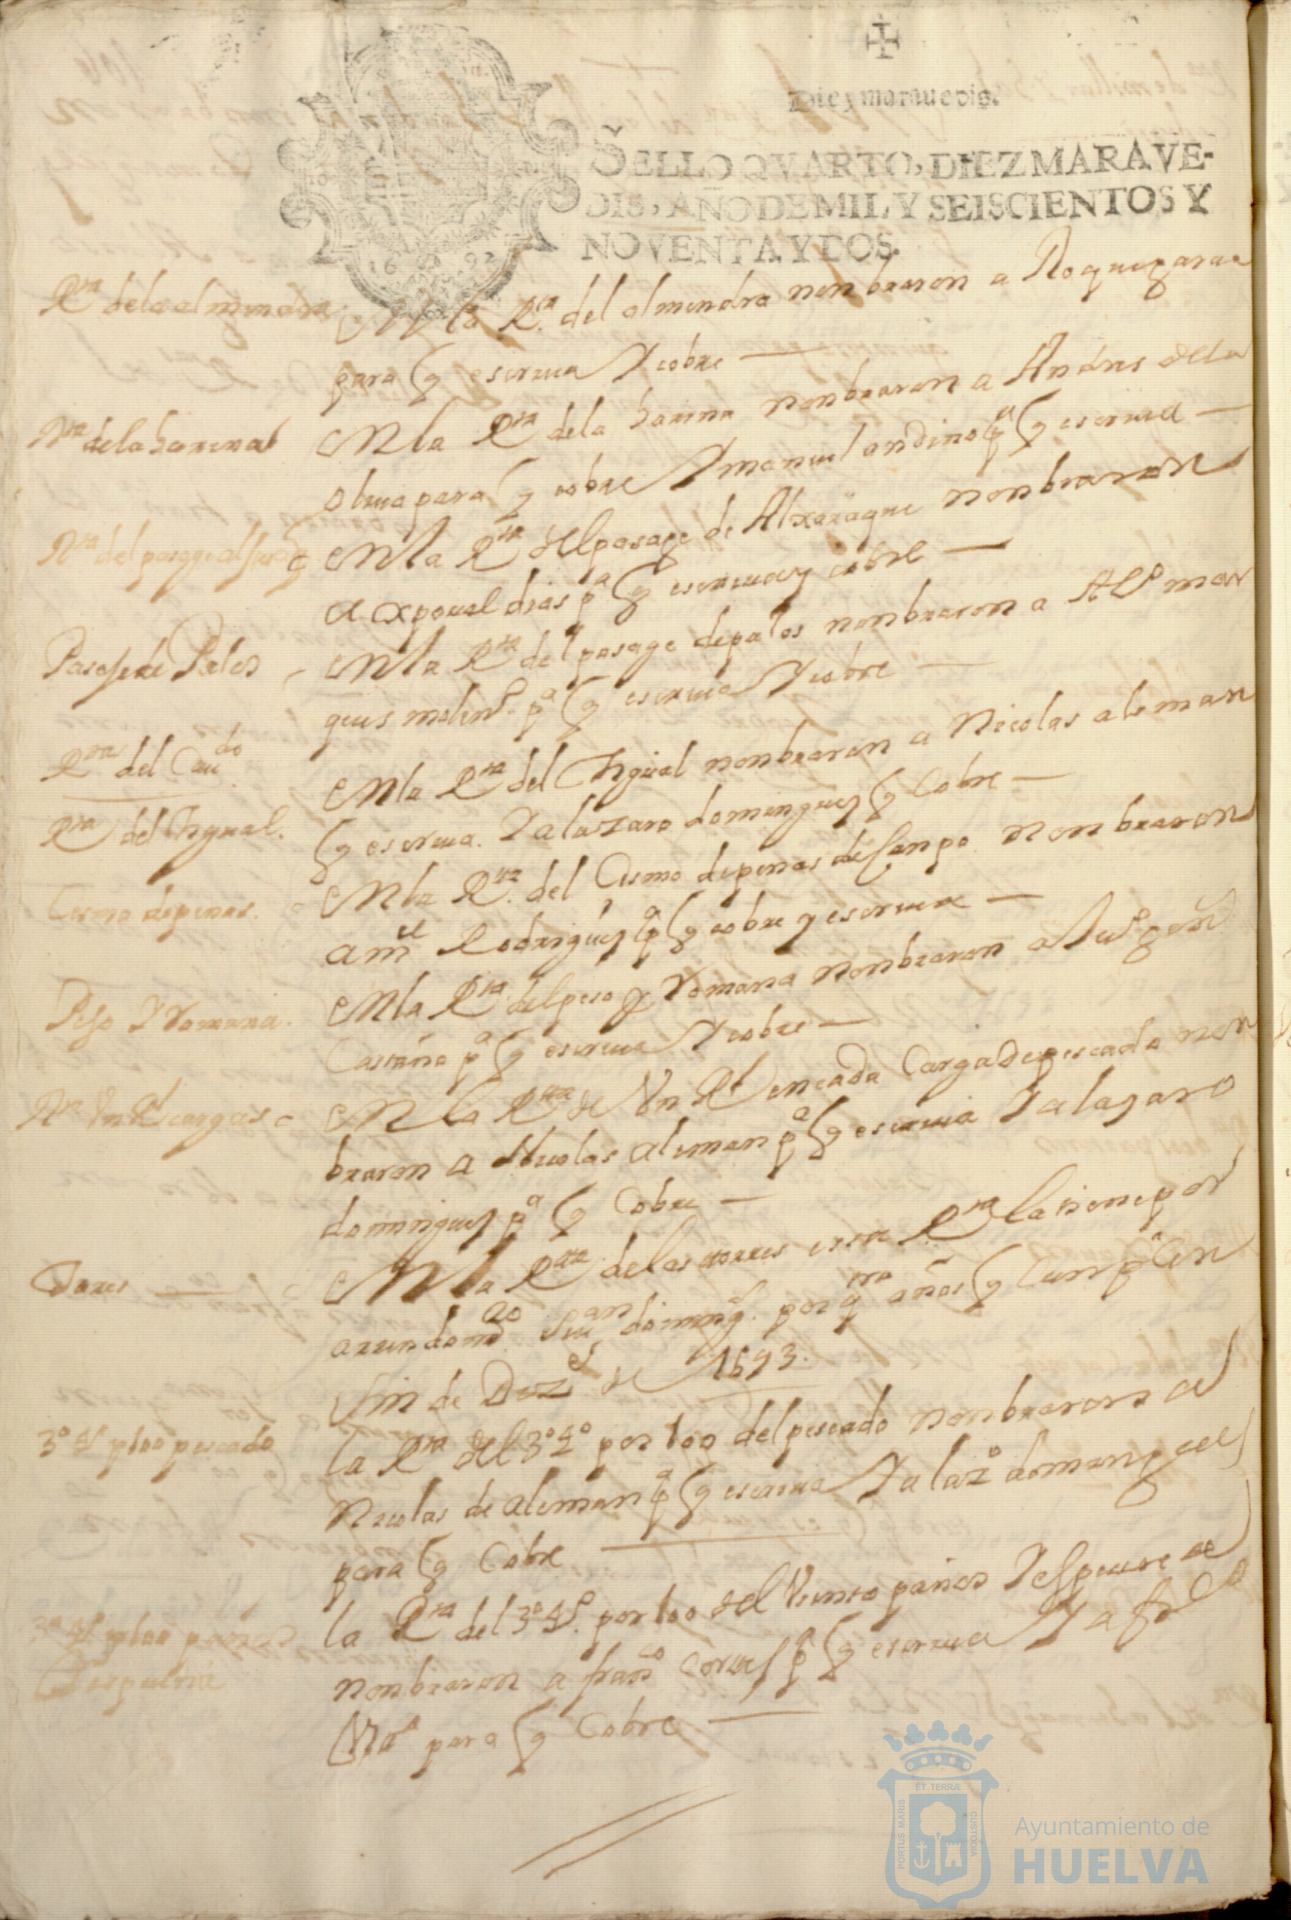 Diez marauedis.
SELLO QVARTO, DIEZ MARAVE-
DIS, AÑO DE MIL Y SEISCIENTOS Y
NOVENTA Y DOS.
1692
Rta de la almendra
En la Rta del almendra nonbraron a Roque
para q escriua Y cobre
Rta de la harina
En la Rta de la harina nonbraron a Andres de la
oliua para q cobre Y manuel andino pa q escriua
Rta del pasage
En la Rta del pasage de Alxaraque nonbraron
a xpoual dias pa q escriua y cobre
Pasaje de Palos
En la Rta del pasage de palos nonbraron a Alo mar
ques molino pa q escriua Y cobre
Rta del Caudo
Rta del Higual.
En la Rta del Higual nonbraron a Nicolas aleman
q escriua. Y a lazaro dominguez q Cobre
Cismo de penas.
En la Rta del Cismo de penas de Canpo nonbraron
a ml Rodriguez pa q cobre y escriua
Peso Y Romana.
En la Rta del peso y Romana nonbraron a
Castaño pa q escriua Y cobre
Rta Vn Rl cargas
En la Rta de Vn Rl en cada Carga de pescado non
braron a Nicolas aleman pa q escriua Y a lazaro
dominguez pa q Cobre
En la Rta de las esta Rta la tiene por
arrendamto Juan doming. por años q Cunplen
fin de Dize de 1693.
3o 4o p 100 pescado
la Rta del 3o 4o por 100 del pescado nonbraron a
Nicolas de aleman pa q escriua Y a lazo domingues
para q Cobre
3o 4o p 100 panos
la Rta del 3o 4o por 100 del Viento panos
nonbraron a franco pa q escriua Y a
para q Cobre
PORTUS MARIS
ET TERRÆ
CUSTODIA
Ayuntamiento de
HUELVA